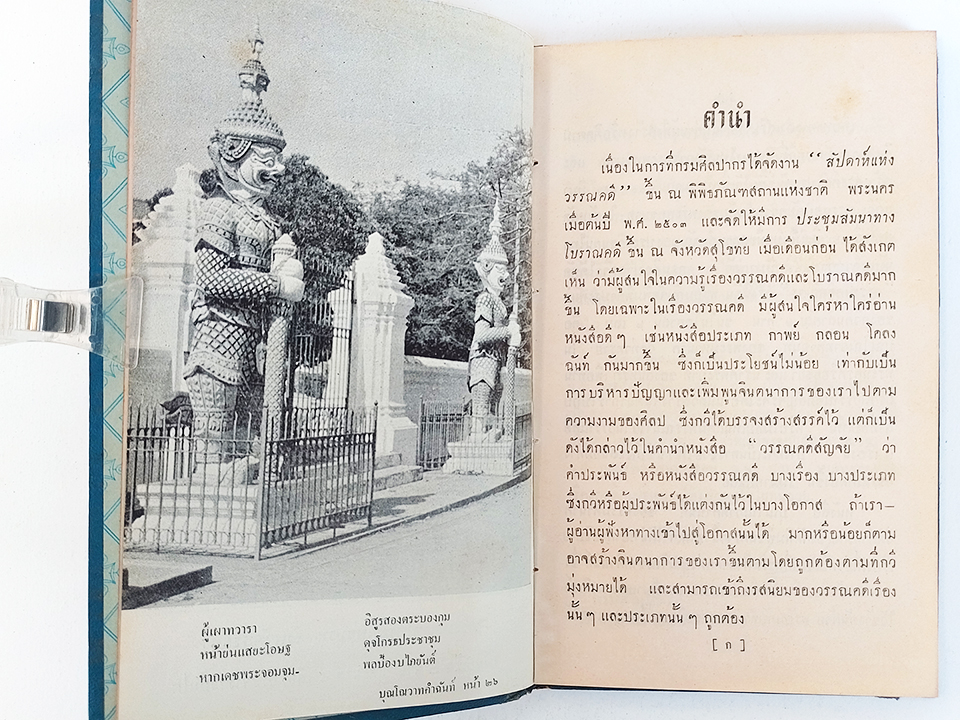 ผู้เผาทวารา
หน้าย่นแสยะโอษฐ
หากเดชพระจอมจุม-
อิสูรสองตระบองกุม
ดุจโกรธประชาชุม
พลป้องบไภยันติ์
บุณโณวาทคำฉันท์ หน้า ๒๖
คำนำ
เนื่องในการที่กรมศิลปากรได้จัดงาน “ สัปดาห์แห่ง
วรรณคดี ” ขึ้น ณ พิพิธภัณฑสถานแห่งชาติ พระนคร
เมื่อต้นปี พ.ศ. ๒๕๐๓ และจัดให้มีการ ประชุมสัมนาทาง
โบราณคดี ขึ้น ณ จังหวัดสุโขทัย เมื่อเดือนก่อน ได้สังเกต
เห็น ว่ามีผู้สนใจในความรู้เรื่องวรรณคดีและโบราณคดีมาก
ขึ้น โดยเฉพาะในเรื่องวรรณคดี มีผู้สนใจใคร่หาใคร่อ่าน
หนังสือดี ๆ เช่นหนังสือประเภท กาพย์ กลอน โคลง
ฉันท์ กันมากขึ้น ซึ่งก็เป็นประโยชน์ไม่น้อย เท่ากับเป็น
การบริหารปัญญาและเพิ่มพูนจินตนาการของเราไปตาม
ความงามของศิลป ซึ่งกวีได้บรรจงสร้างสรรค์ไว้ แต่ก็เป็น
ดังได้กล่าวไว้ในคำนำหนังสือ “วรรณคดีสัญจัย” ว่า
คำประพันธ์ หรือหนังสือวรรณคดี บางเรื่อง บางประเภท
ซึ่งกวีหรือผู้ประพันธ์ได้แต่งกันไว้ในบางโอกาส ถ้าเรา—
ผู้อ่านผู้ฟังหาทางเข้าไปสู่โอกาสนั้นได้ มากหรือน้อยก็ตาม
อาจสร้างจินตนาการของเราขึ้นตามโดยถูกต้องตามที่กวี
มุ่งหมายได้ และสามารถเข้าถึงรสนิยมของวรรณคดีเรื่อง
นั้น ๆ และประเภทนั้น ๆ ถูกต้อง
[ ก ]